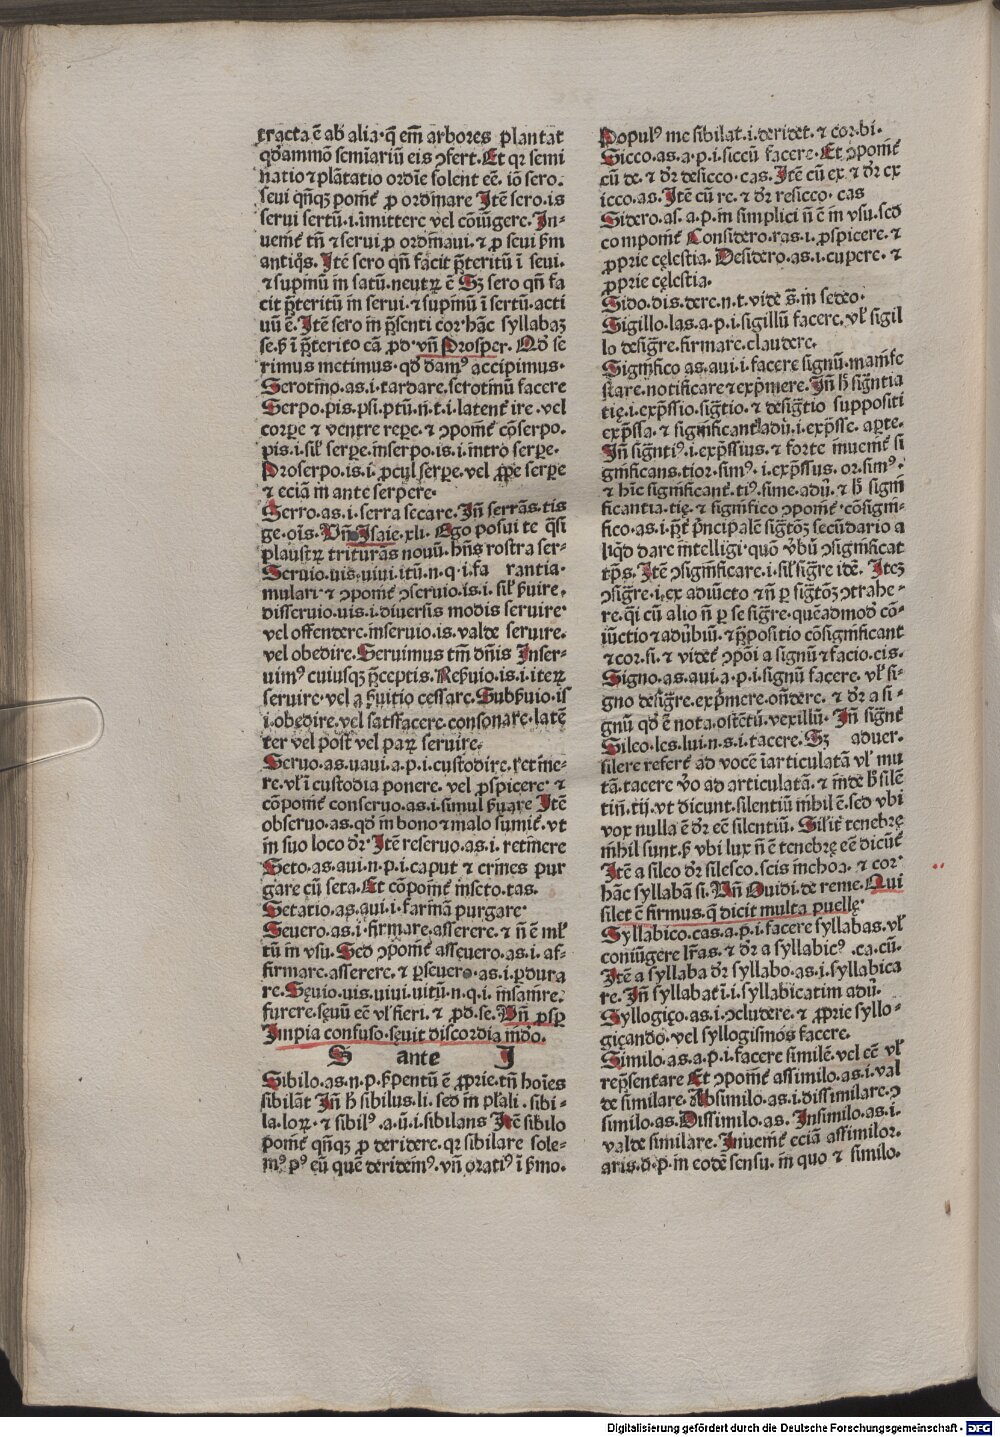 tracta ē ab alia· q̄ em̄ arbores plantat
qd̓ammō semiariū eis ɔfert. Et qꝛ semi
natio ⁊ plātatio ordīe solent eē. iō sero.
seui qn̄qꝫ pomt̄ ꝓ ordinare Itē sero.is
serui sertū.i.īmittere vel cōiūgere. In-
uemt̄ tn̄ ⁊ serui ꝓ ordinaui. ⁊ ꝓ seui ẜm
antiq̄s. Itē sero qn̄ facit p̄teritū ī seui.
⁊ supinū in satū. neutꝝ ē Sꝫ sero qn̄ fa
cit p̄teritū in serui. ⁊ supinū ī sertū. acti
uū ē. Itē sero in p̄senti cor̓ hāc syllabaꝫ
se. ẜ ī p̄terito eā ꝓd· vn̄ Prosper. Qd̓ se
rimus metimus. qd̓ dam⁹ accipimus.
Serotino.as.i.tardare. serotinū facere
Serpo.pis.psi.ptū.n̄.t.i.latent̓ ire. vel
corꝑe ⁊ ventre reꝑe. ⁊ ɔpomt̄ cōserpo.
pis.i.sil̓ serꝑe. inserpo.is.i.intro serꝑe.
Proserpo.is.i.ꝓcul serꝑe. vel ꝓpe serꝑe
⁊ eciā in ante serpere.
Serro.as.i.serra secare. Jn̄ serrās. tis
ge.oīs. Vn̄ Isaie.xli. Ego posui te q̄si
plaustꝝ triturās nouū. hn̄s rostra ser-
Seruio.uis.uiui.itū.n.q.i.fa rantia.
mulari· ⁊ ɔpomt̄ ɔseruio.is.i.sil̓ ẜuire.
disseruio.uis.i.diuersis modis seruire·
vel offendere. inseruio.is. valde seruire.
vel obedire. Seruimus tm̄ dn̄is Inser-
uim⁹ cuiusqꝫ p̄ceptis. Reẜuio.is.i.iteꝝ
seruire. vel a ẜuitio cessare. Subẜuio.is
i.obedire. vel satisfacere. consonare. latē
ter vel post vel paꝝ seruire.
Seruo.as.uaui.a.p.i.custodire. retine-
re. vl̓ ī custodia ponere. vel ꝓspicere· ⁊
cōpomt̄ conseruo.as.i.simul ẜuare Itē
obseruo.as. qd̓ in bono ⁊ malo sumit̓. vt
in suo loco dr̓· Itē reseruo.as.i.retinere
Seto.as.aui.n.p.i.caput ⁊ crines pur
gare cū seta. Et cōpomt̄ inseto.tas.
Setatio.as.aui.i.farinā purgare·
Seuero.as.i.firmare. asserere. ⁊ n̄ ē ml̓
tū in vsu. Sed ɔpomt̄ asseuero.as.i.af-
firmare. asserere. ⁊ ꝑseuero.as.i.ꝑdura
re. Sęuio.uis.uiui.uitū.n.q.i.insanire.
furere. sęuū eē vl̓ fieri. ⁊ ꝓd.se. Vn̄ ꝓsp
Impia confuso. seuit discordia mūdo.
S ante I
Sibilo.as.n.p. ẜpentū ē ꝓprie. tn̄ hoīes
sibilāt Jn̄ ẜ sibilus.li. sed in pl̓ali. sibi-
la.loꝝ. ⁊ sibil⁹.a.ū.i.sibilans Itē sibilo
pomt̄ qn̄qꝫ ꝓ deridere. qꝛ sibilare sole-
m⁹ p⁹ eū quē deridem⁹. vn̄ orati⁹ ī ẜmo.
Popul⁹ me sibilat.i.deridet. ⁊ cor.bi.
Sicco.as.a.p.i.siccū facere. Et ɔpomt̄
cū de. ⁊ dr̓ desicco.cas. Itē cū ex ⁊ dr̓ ex
icco.as. Itē cū re. ⁊ dr̓ resicco. cas
Sidero.as.a.p. in simplici n̄ ē in vsu. sed
compomt̄ Considero.ras.i.ꝓspicere. ⁊
ꝓprie cęlestia. Desidero.as.i.cupere. ⁊
ꝓprie cęlestia.
Sido.dis.dere.n.t. vide s̄. in sedeo.
Sigillo.las.a.p.i.sigillū facere. vl̓ sigil
lo desig̓re. firmare. claudere.
Significo as.aui.i.facere signū. manife
stare. notificare ⁊ exp̓mere. Jn̄ ẜ sign̄tia
tię.i.exp̄ssio. sig̓tio. ⁊ desig̓tio suppositi
exp̄ssa. ⁊ significant̓ adū.i.exp̄sse. aꝑte.
Jn̄ sign̄ti⁹.i.exp̄ssius. ⁊ forte inuemt̄ si
gnificans.tior.sim⁹.i.exp̄ssus.or.sim⁹.
⁊ hinc significant̓.ti⁹.sime.adū. ⁊ ẜ signi
ficantia.tię. ⁊ significo ɔpomt̄· cōsigni-
fico.as.i.p̄t̓ p̄ncipalē sig̓tōꝫ secūdario a
liq̄d dare intelligi· quō v̓bū ɔsignificat
tp̄s. Itē ɔsignificare.i.sil̓ sig̓re idē. Iteꝫ
ɔsig̓re.i.ex adiūcto ⁊ n̄ ꝑ sig̓tōꝫ ɔtrahe-
re. q̄i cū alio n̄ ꝑ se sig̓re. quēadmod̓ cō-
iūctio ⁊ adūbiū. ⁊ p̄positio cōsignificant
⁊ cor.si. ⁊ videt̓ ɔpōi a signū ⁊ facio.cis.
Signo.as.aui.a.p.i.signū facere. vl̓ si-
gno desig̓re. exp̓mere. on̄dere. ⁊ dr̓ a si-
gnū qd̓ ē nota. ostētū. vexillū. Jn̄ sign̄t̓
Sileo.les.lui.n.s.i.tacere. Sꝫ aduer-
silere refert̓ ad vocē īarticulatā vl̓ mu
tā. tacere v̓o ad articulatā. ⁊ inde ẜ silē
tiū.tij. vt dicunt. silentiū nihil ē. sed vbi
vox nulla ē dr̓ eē silentiū. Silit̓ tenebrę
nihil sunt. ẜ vbi lux n̄ ē tenebrę eē dicūt̓
Itē a sileo dr̓ silesco.scis inchoa. ⁊ cor̓
hāc syllabā si. Vn̄ Ouidi. de reme. Qui
silet ē firmus. q̄ dicit multa puellę.
Syllabico.cas.a.p.i.facere syllabas. vl̓
coniūgere lr̄as. ⁊ dr̓ a syllabic⁹.ca.cū.
Itē a syllaba dr̓ syllabo.as.i.syllabica
re. Jn̄ syllabat̓ i.i.syllabicatim adū.
Syllogiço.as.i.ɔcludere. ⁊ ꝓprie syllo-
giçando. vel syllogismos facere.
Similo.as.a.p.i.facere similē. vel eē vl̓
rep̄sentare Et ɔpomt̄ assimilo.as.i.val
de similare. Absimilo.as.i.dissimilare. ɔ
similo.as. Dissimilo.as. Insimilo.as.i.
valde similare. Inuemt̄ eciā assimilor.
aris.d.p. in eodē sensu. in quo ⁊ similo.
Digitalisierung gefördert durch die Deutsche Forschungsgemeinschaft - DFG